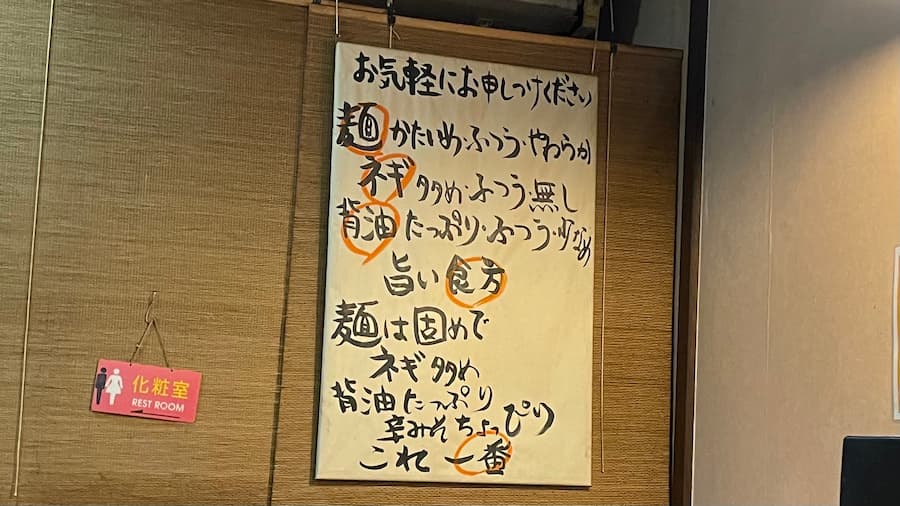 お気軽にお申しつけください
麺 かためめ・ふつう・やわらか
ネギ 多め・ふつう・無し
背油 たっぷり・ふつう・少なめ
旨い食方
麺は固めで
ネギ多め
背油たっぷり
辛みそちょっぴり
これ一番
化粧室
REST ROOM